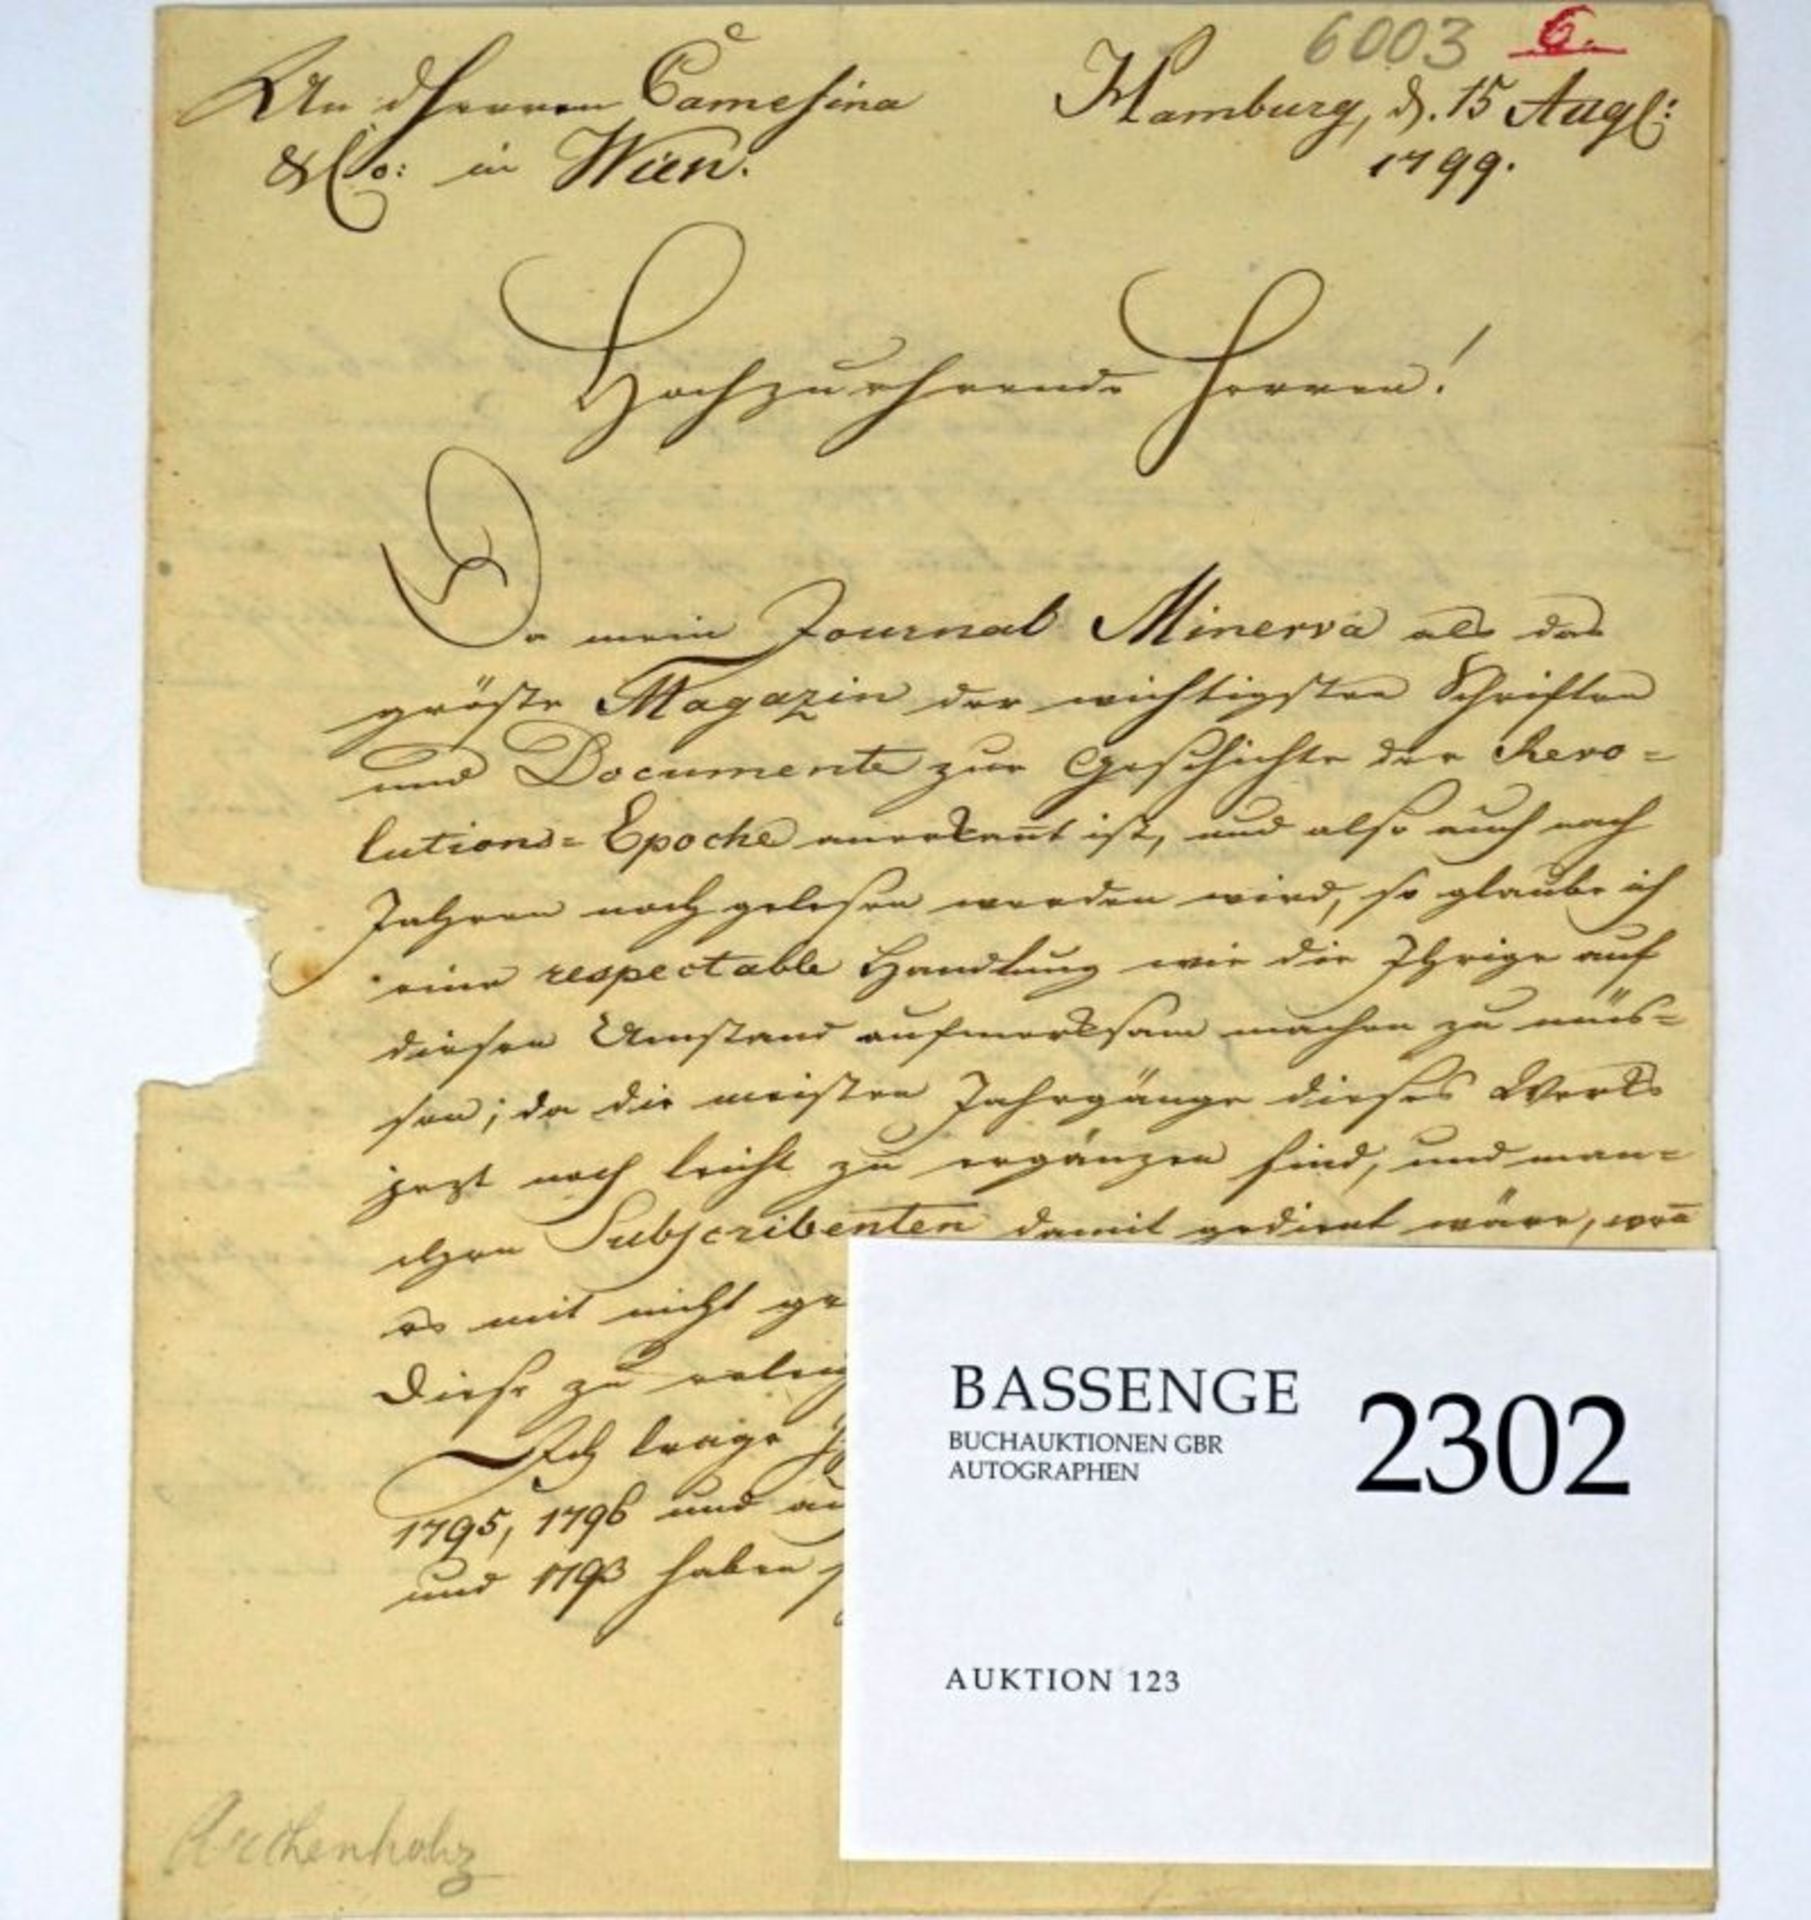 6003 6.
An dHerren Camesina
& Co: in Wien.
Hamburg, d. 15 Aug:
1799.
Hochzuehrende Herren!
Da mein Journal Minerva als das
gröste Magazin der wichtigsten Schriften
und Documente zur Geschichte der Revo=
lutions=Epoche anerkan̄t ist, und also auch nach
Jahren noch gelesen werden wird, so glaube ich
eine respectable Handlung wie die Ihrige auf
diesen Umstand aufmerksam machen zu müs=
sen; da die meisten Jahrgänge dieses Werks
jezt noch leicht zu ergänzen sind, und man=
chen Subscribenten damit gedient wäre, wen̄
es mit nicht ge
diese zu erleg
Ich trage
1795, 1796 und au
und 1793 haben
Archenholz
BASSENGE
BUCHAUKTIONEN GBR
AUTOGRAPHEN
2302
AUKTION 123